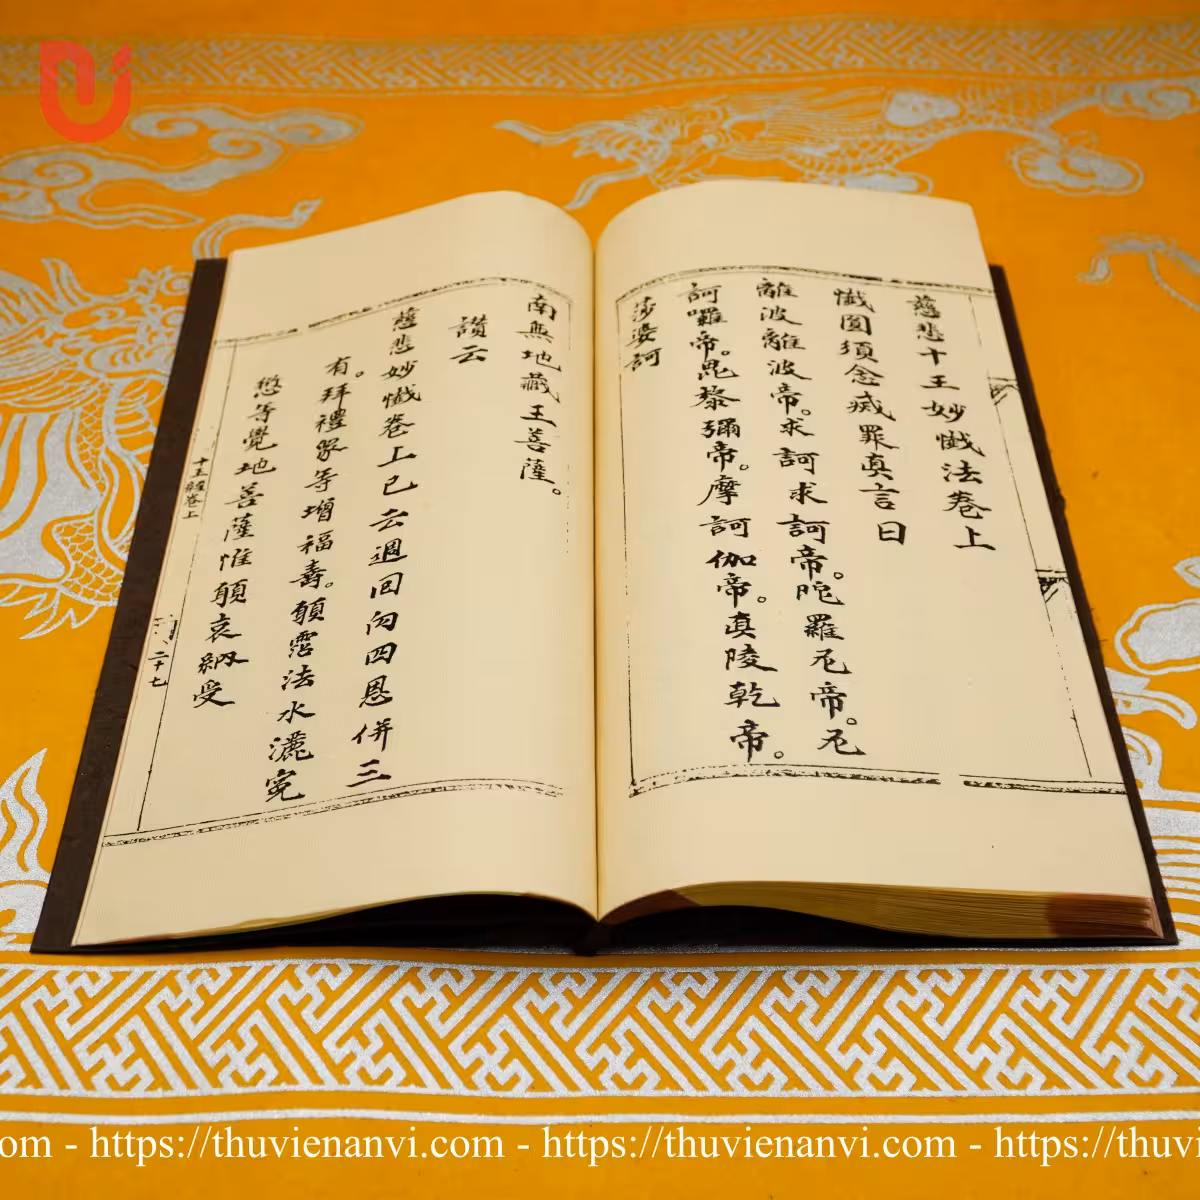 慈悲十王妙懺法卷上
懺圓須念滅罪真言曰
離波離波帝。求訶求訶帝。陀羅尼帝。尼
訶囉帝。毘黎彌帝。摩訶伽帝。真陵乾帝。
莎婆訶
南無地藏王菩薩。
讚云
慈悲妙懺卷上已云週回向四恩併三
有。拜禮眾等增福壽。願霑法水灑冤
愆等覺地菩薩惟願哀納受
十王經卷上
二十七
om - https://thuvienanvi.com - https://thuvienanvi.com - https://thuvi